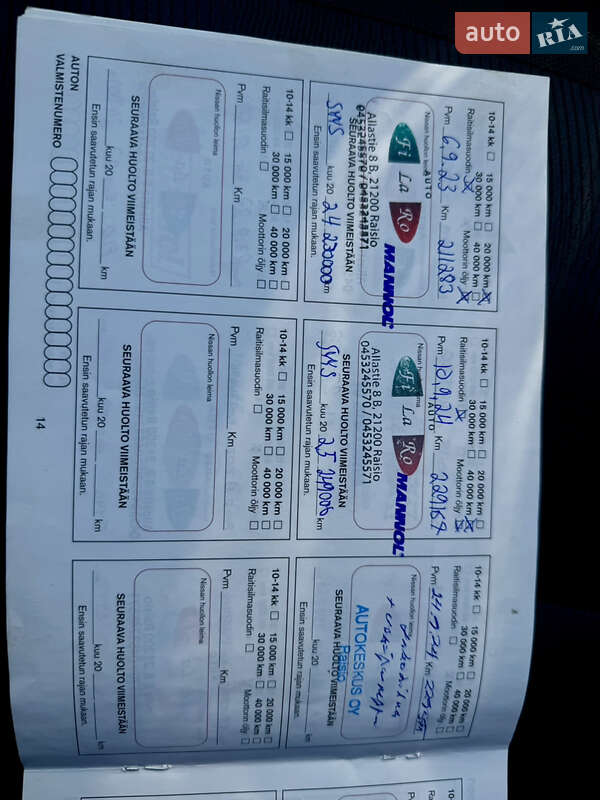 auto RIA .com
10-14 kk 15 000 km 20 000 km
30 000 km 40 000 km
Raitisilmasuodin Moottorin öljy
Pvm 6.9.23 Km 211283
Nissan huollon leima
AUTO
Fi La Ro
MANNOL
Allastie 8 B, 21200 Raisio
0453245570 / 0453245571
SEURAAVA HUOLTO VIIMEISTÄÄN
SYYS kuu 20 24 km
Ensin saavutetun rajan mukaan.
10-14 kk 15 000 km 20 000 km
30 000 km 40 000 km
Raitisilmasuodin Moottorin öljy
Pvm Km
Nissan huollon leima
AUTO
Fi La Ro
MANNOL
Allastie 8 B, 21200 Raisio
0453245570 / 0453245571
SEURAAVA HUOLTO VIIMEISTÄÄN
SYYS kuu 20 25 km
Ensin saavutetun rajan mukaan.
10-14 kk 15 000 km 20 000 km
30 000 km 40 000 km
Raitisilmasuodin Moottorin öljy
Pvm Km
Nissan huollon leima
AUTOKESKUS OY
Raisio
SEURAAVA HUOLTO VIIMEISTÄÄN
kuu 20 km
Ensin saavutetun rajan mukaan.
10-14 kk 15 000 km 20 000 km
30 000 km 40 000 km
Raitisilmasuodin Moottorin öljy
Pvm Km
Nissan huollon leima
SEURAAVA HUOLTO VIIMEISTÄÄN
kuu 20 km
Ensin saavutetun rajan mukaan.
10-14 kk 15 000 km 20 000 km
30 000 km 40 000 km
Raitisilmasuodin Moottorin öljy
Pvm Km
Nissan huollon leima
SEURAAVA HUOLTO VIIMEISTÄÄN
kuu 20 km
Ensin saavutetun rajan mukaan.
10-14 kk 15 000 km 20 000 km
30 000 km 40 000 km
Raitisilmasuodin Moottorin öljy
Pvm Km
Nissan huollon leima
SEURAAVA HUOLTO VIIMEISTÄÄN
kuu 20 km
Ensin saavutetun rajan mukaan.
AUTON
VALMISTENUMERO
14